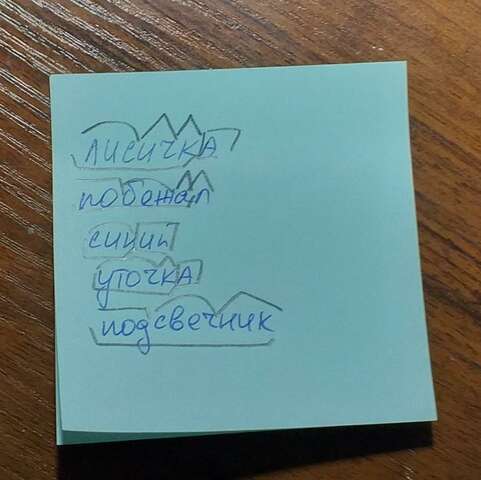 лисичка
побежал
синий
уточка
подсвечник